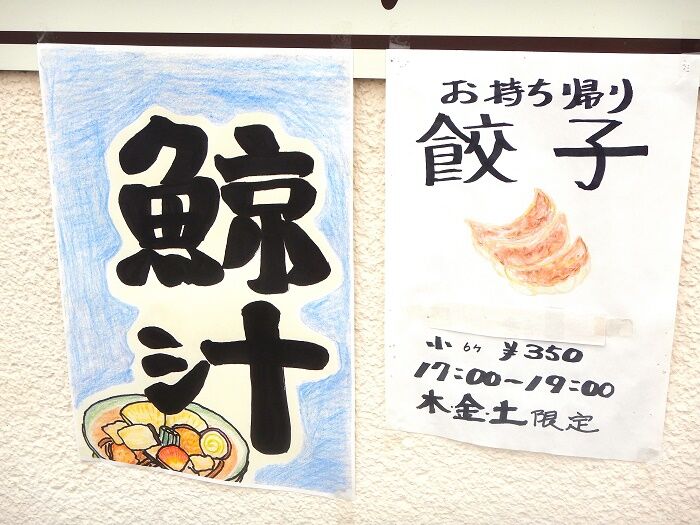 鯨
汁
お持ち帰り
餃子
小 6ケ ¥350
17:00〜19:00
木・金・土限定